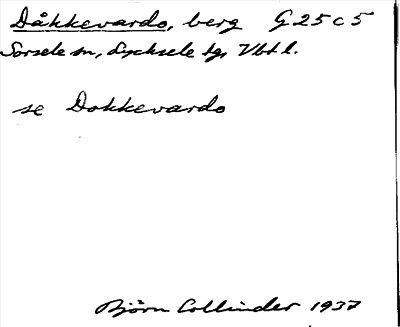 Dåkkevardo, berg G 25 c 5
Sorsele sn, Lycksele tg, Vbt l.
se Dokkevardo
Björn Collinder 1937